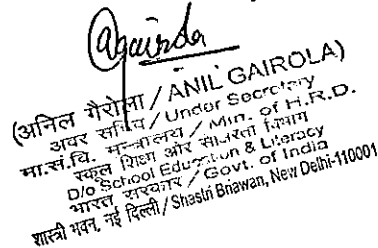 (अनिल गैरोला / ANIL GAIROLA)
अवर सचिव / Under Secretary
मा.सं.वि. मन्त्रालय / Min. of H.R.D.
स्कूल शिक्षा और साक्षरता विभाग
D/o School Education & Literacy
भारत सरकार / Govt. of India
शास्त्री भवन, नई दिल्ली / Shastri Bhawan, New Delhi-110001